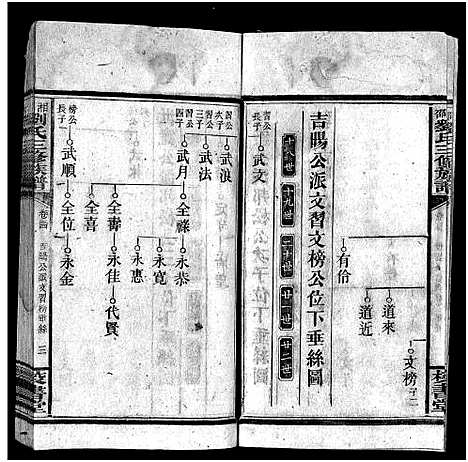 有伶
道來
道近
文榜
吉賜公派文習文榜公位下垂絲圖
十八世
十九世
二十世
廿一世
廿二世
習公長子
武文
習公次子
武浪
三子
武法
習公四子
武月
全祿
永恭
永寬
永惠
全壽
永佳
代賢
全喜
榜公長子
武順
全位
永金
劉氏三修族譜
卷四
吉賜公派文習榜垂絲
三